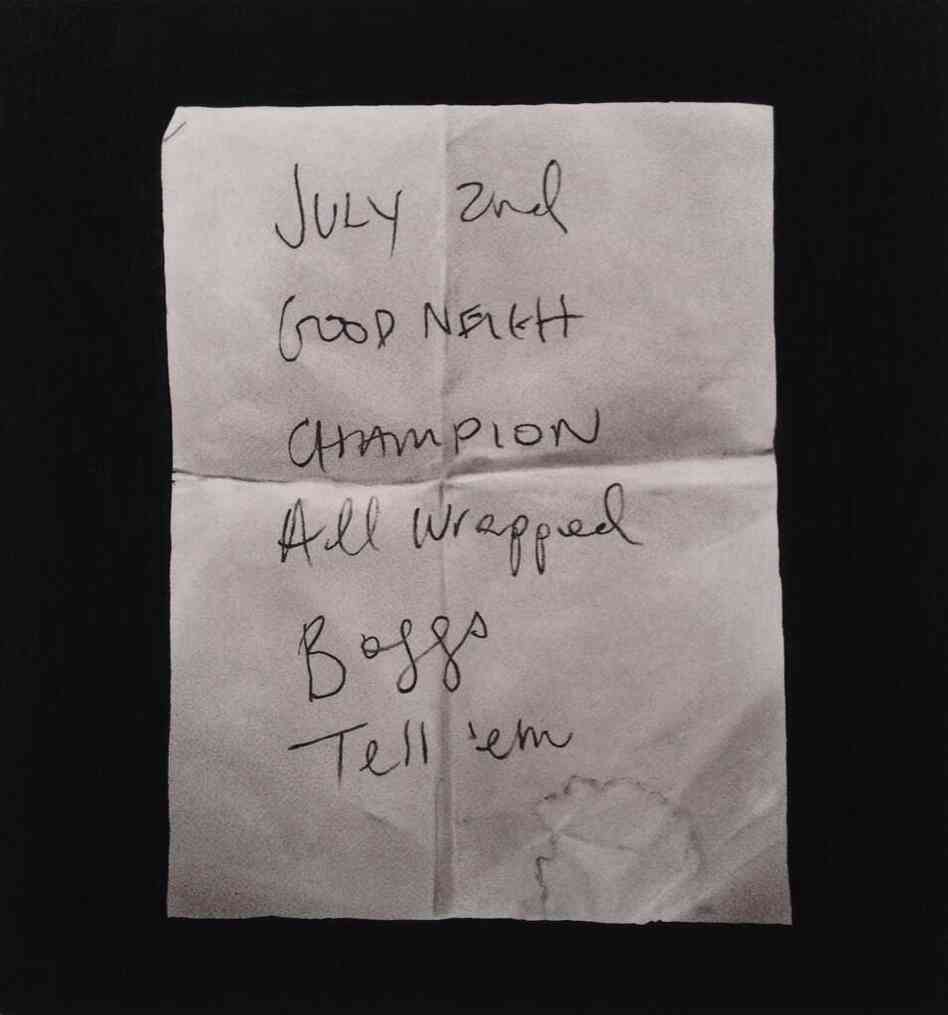 JULY 2nd
GOOD NEIGH
CHAMPION
All Wrapped
Boggs
Tell 'em